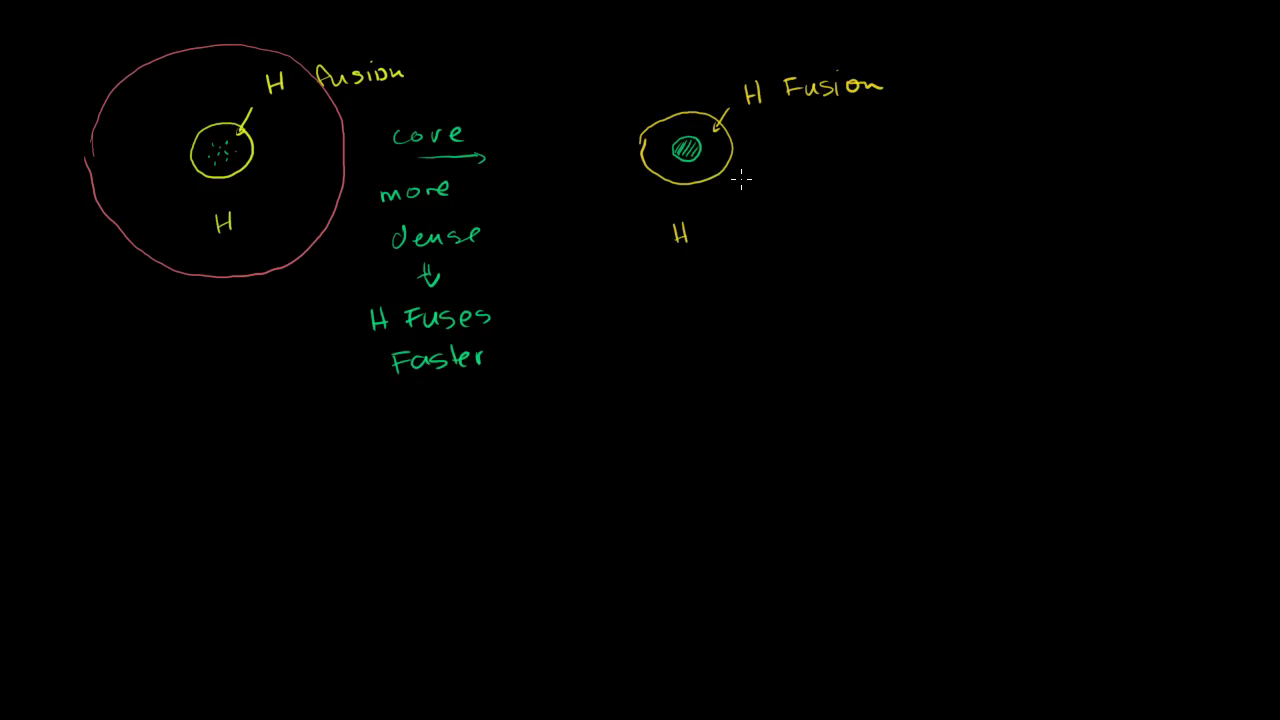 H fusion
H
core
more
dense
H Fuses
Faster
H Fusion
H